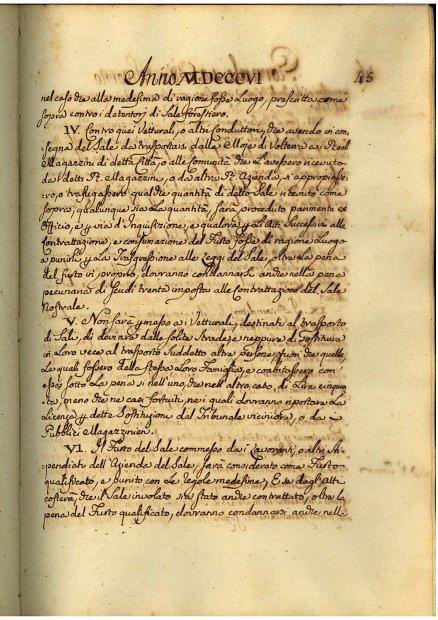 Anno MDCCCVI 45
nel caso che alla medesima di ragione fosse luogo, prescritta come
sopra contro i detentori di Sale forestiero.
IV. Contro quei Vetturali, o altri conduttori, che avendo in con
segna del Sale da trasportarsi dalle Moje di Volterra ai Reali
Magazzini di detta Città, o alle Comunità che l'avessero ricevuto
da i detti R. Magazzini, o da altra R. Azienda, si appropiasse
ro, o trafugassero qualche quantità di detto Sale ritenuto come
sopra, qualunque sia la quantità, sarà proceduto parimente ex
Officio, e per via d'Inquisizione, e qualora per gli Atti Successivi alla
contrattazione, e consumazione del Furto fosse di ragione luogo
a punirli per la Trasgressione alle Leggi del Sale, oltre la pena
del furto in proprio, dovranno condannarsi anche nella pena
pecuniaria di Scudi trenta imposta alle contrattazioni del Sale
Nostrale.
V. Non sarà permesso ai Vetturali, destinati al trasporto
di Sale, di deviare dalle solite strade, e neppure di sostituire
in loro vece al trasporto suddetto altre persone, fuori che quelle,
le quali fossero della stessa loro Famiglia, e coabitassero con
essi sotto la pena in nell'uno, che nell'altro caso di Lire cinquan
ta, meno che ne casi fortuiti, nei quali dovranno riportare la
Licenza per dette Sostituzioni dal Tribunale viciniore, o da
Pubblici Magazzinieri.
VI. Il Furto del Sale commesso dai Lavoranti, o altri Sti
pendiati dell'Azienda del Sale, sarà considerato come Furto
qualificato, e punito con le regole medesime, E se dagli Atti
costerà, che il Sale involato sia stato anche contrattato, oltre la
pena del Furto qualificato, dovranno condannarsi anche nella